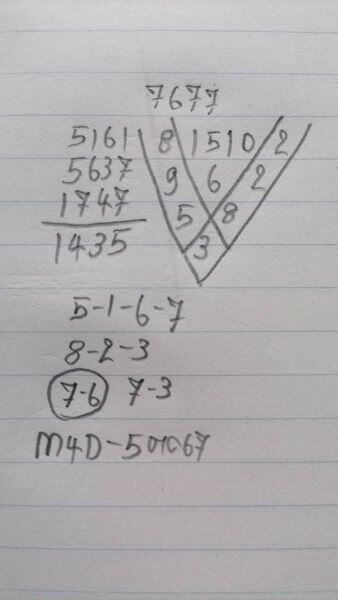 7677
5161 8 1510 2
5637 9 6 2
1747 5 8
1435 3
5-1-6-7
8-2-3
7-6 7-3
M4D-50